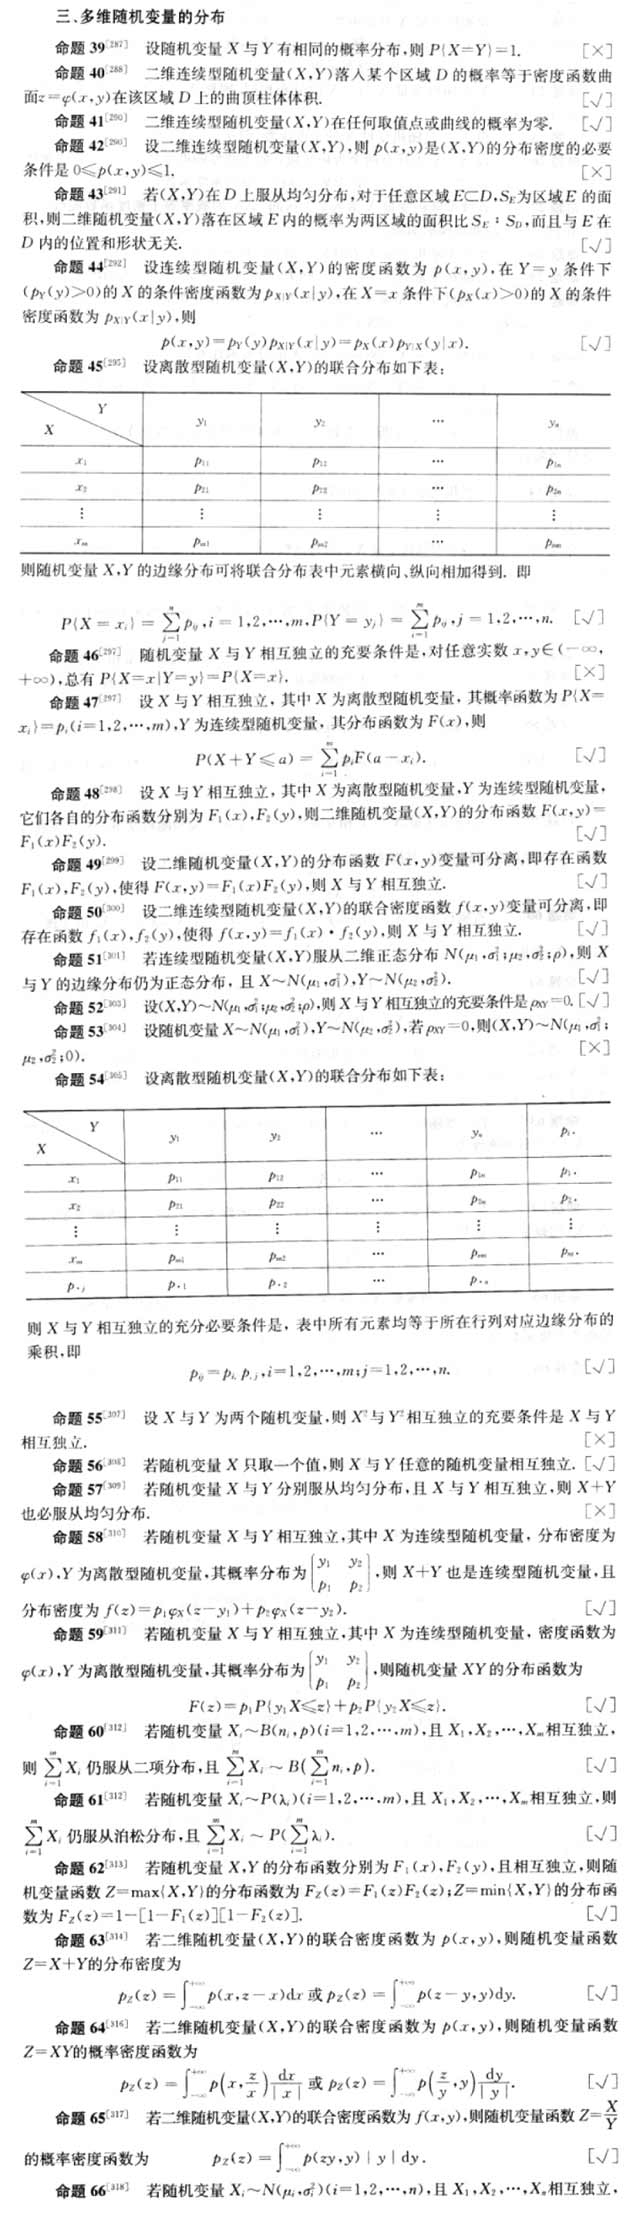 三、多维随机变量的分布
命题 39[287] 设随机变量 X 与 Y 有相同的概率分布,则 P{X=Y}=1. [×]
命题 40[288] 二维连续型随机变量(X,Y)落入某个区域 D 的概率等于密度函数曲
面z=φ(x,y)在该区域 D 上的曲顶柱体体积. [√]
命题 41[290] 二维连续型随机变量(X,Y)在任何取值点或曲线的概率为零. [√]
命题 42[290] 设二维连续型随机变量(X,Y),则 p(x,y)是(X,Y)的分布密度的必要
条件是 0≤p(x,y)≤1. [×]
命题 43[291] 若(X,Y)在 D 上服从均匀分布,对于任意区域E⊂D,S_E为区域E 的面
积,则二维随机变量(X,Y)落在区域 E 内的概率为两区域的面积比 S_E : S_D,而且与 E 在
D 内的位置和形状无关. [√]
命题 44[292] 设连续型随机变量(X,Y)的密度函数为 p(x,y),在 Y=y 条件下
(p_Y(y)>0)的 X 的条件密度函数为 p_{X|Y}(x|y),在 X=x 条件下(p_X(x)>0)的 X 的条件
密度函数为 p_{Y|X}(y|x),则
p(x,y)=p_Y(y)p_{X|Y}(x|y)=p_X(x)p_{Y|X}(y|x). [√]
命题 45[295] 设离散型随机变量(X,Y)的联合分布如下表:
Y
X y₁ y₂ … yₙ
x₁ p₁₁ p₁₂ … p₁ₙ
x₂ p₂₁ p₂₂ … p₂ₙ
⋮ ⋮ ⋮ ⋮ ⋮
xₘ pₘ₁ pₘ₂ … pₘₙ
则随机变量 X,Y 的边缘分布可将联合分布表中元素横向、纵向相加得到. 即
P{X = x_i} = ∑_{j=1}^{n} p_{ij},i = 1,2,…,m,P{Y = y_j} = ∑_{i=1}^{m} p_{ij},j = 1,2,…,n. [√]
命题 46[297] 随机变量 X 与 Y 相互独立的充要条件是,对任意实数 x,y∈(−∞,
+∞),总有 P{X=x|Y=y}=P{X=x}. [×]
命题 47[297] 设 X 与 Y 相互独立, 其中 X 为离散型随机变量, 其概率函数为 P{X=
x_i}=p_i(i=1,2,…,m),Y 为连续型随机变量, 其分布函数为 F(x),则
P(X+Y≤a) = ∑_{i=1}^{m} p_iF(a−x_i). [√]
命题 48[298] 设 X 与 Y 相互独立, 其中 X 为离散型随机变量,Y 为连续型随机变量,
它们各自的分布函数分别为 F₁(x),F₂(y),则二维随机变量(X,Y)的分布函数 F(x,y)=
F₁(x)F₂(y). [√]
命题 49[299] 设二维随机变量(X,Y)的分布函数 F(x,y)变量可分离,即存在函数
F₁(x),F₂(y),使得 F(x,y)=F₁(x)F₂(y),则 X 与 Y 相互独立. [√]
命题 50[300] 设二维连续型随机变量(X,Y)的联合密度函数 f(x,y)变量可分离,即
存在函数 f₁(x),f₂(y),使得 f(x,y)=f₁(x)·f₂(y),则 X 与 Y 相互独立. [√]
命题 51[301] 若连续型随机变量(X,Y)服从二维正态分布 N(μ₁,σ₁²;μ₂,σ₂²;ρ),则 X
与 Y 的边缘分布仍为正态分布, 且 X~N(μ₁,σ₁²),Y~N(μ₂,σ₂²). [√]
命题 52[303] 设(X,Y)~N(μ₁,σ₁²;μ₂,σ₂²;ρ),则 X 与 Y 相互独立的充要条件是 ρ_{XY}=0. [√]
命题 53[304] 设随机变量 X~N(μ₁,σ₁²),Y~N(μ₂,σ₂²),若 ρ_{XY}=0,则(X,Y)~N(μ₁,σ₁²;
μ₂,σ₂²;0). [×]
命题 54[305] 设离散型随机变量(X,Y)的联合分布如下表:
Y
X y₁ y₂ … yₙ p_{i·}
x₁ p₁₁ p₁₂ … p₁ₙ p₁.
x₂ p₂₁ p₂₂ … p₂ₙ p₂.
⋮ ⋮ ⋮ ⋮ ⋮ ⋮
xₘ pₘ₁ pₘ₂ … pₘₙ pₘ.
p_{·j} p_{·1} p_{·2} … p_{·n}
则 X 与 Y 相互独立的充分必要条件是, 表中所有元素均等于所在行列对应边缘分布的
乘积,即
p_{ij}=p_{i·}p_{·j},i=1,2,…,m;j=1,2,…,n. [√]
命题 55[307] 设 X 与 Y 为两个随机变量,则 X²与 Y²相互独立的充要条件是 X 与 Y
相互独立. [×]
命题 56[308] 若随机变量 X 只取一个值,则 X 与 Y 任意的随机变量相互独立. [√]
命题 57[309] 若随机变量 X 与 Y 分别服从均匀分布,且 X 与 Y 相互独立,则 X+Y
也必服从均匀分布. [×]
命题 58[310] 若随机变量 X 与 Y 相互独立,其中 X 为连续型随机变量, 分布密度为
φ(x),Y 为离散型随机变量,其概率分布为 [y₁ y₂; p₁ p₂],则 X+Y 也是连续型随机变量,且
分布密度为 f(z)=p₁φ_X(z−y₁)+p₂φ_X(z−y₂). [√]
命题 59[311] 若随机变量 X 与 Y 相互独立,其中 X 为连续型随机变量, 密度函数为
φ(x),Y 为离散型随机变量,其概率分布为 [y₁ y₂; p₁ p₂],则随机变量 XY 的分布函数为
F(z)=p₁P{y₁X≤z}+p₂P{y₂X≤z}. [√]
命题 60[312] 若随机变量 X_i~B(n_i,p)(i=1,2,…,m),且 X₁,X₂,…,Xₘ相互独立,
则 ∑_{i=1}^{m} X_i 仍服从二项分布,且 ∑_{i=1}^{m} X_i ~ B(∑_{i=1}^{m} n_i,p). [√]
命题 61[312] 若随机变量 X_i~P(λ_i)(i=1,2,…,m),且 X₁,X₂,…,Xₘ相互独立,则
∑_{i=1}^{m} X_i 仍服从泊松分布,且 ∑_{i=1}^{m} X_i ~ P(∑_{i=1}^{m} λ_i). [√]
命题 62[313] 若随机变量 X,Y 的分布函数分别为 F₁(x),F₂(y),且相互独立,则随
机变量函数 Z=max{X,Y}的分布函数为 F_Z(z)=F₁(z)F₂(z);Z=min{X,Y}的分布函
数为 F_Z(z)=1−[1−F₁(z)][1−F₂(z)]. [√]
命题 63[314] 若二维随机变量(X,Y)的联合密度函数为 p(x,y),则随机变量函数
Z=X+Y的分布密度为
p_Z(z) = ∫_{−∞}^{+∞} p(x,z−x)dx 或 p_Z(z) = ∫_{−∞}^{+∞} p(z−y,y)dy. [√]
命题 64[316] 若二维随机变量(X,Y)的联合密度函数为 p(x,y),则随机变量函数
Z=XY的概率密度函数为
p_Z(z) = ∫_{−∞}^{+∞} p(x,z/x) dx/|x| 或 p_Z(z) = ∫_{−∞}^{+∞} p(z/y,y) dy/|y|. [√]
命题 65[317] 若二维随机变量(X,Y)的联合密度函数为 f(x,y),则随机变量函数 Z=X/Y
的概率密度函数为 p_Z(z) = ∫_{−∞}^{+∞} p(zy,y)|y|dy. [√]
命题 66[318] 若随机变量 X_i~N(μ_i,σ_i²)(i=1,2,…,n),且 X₁,X₂,…,Xₙ相互独立,